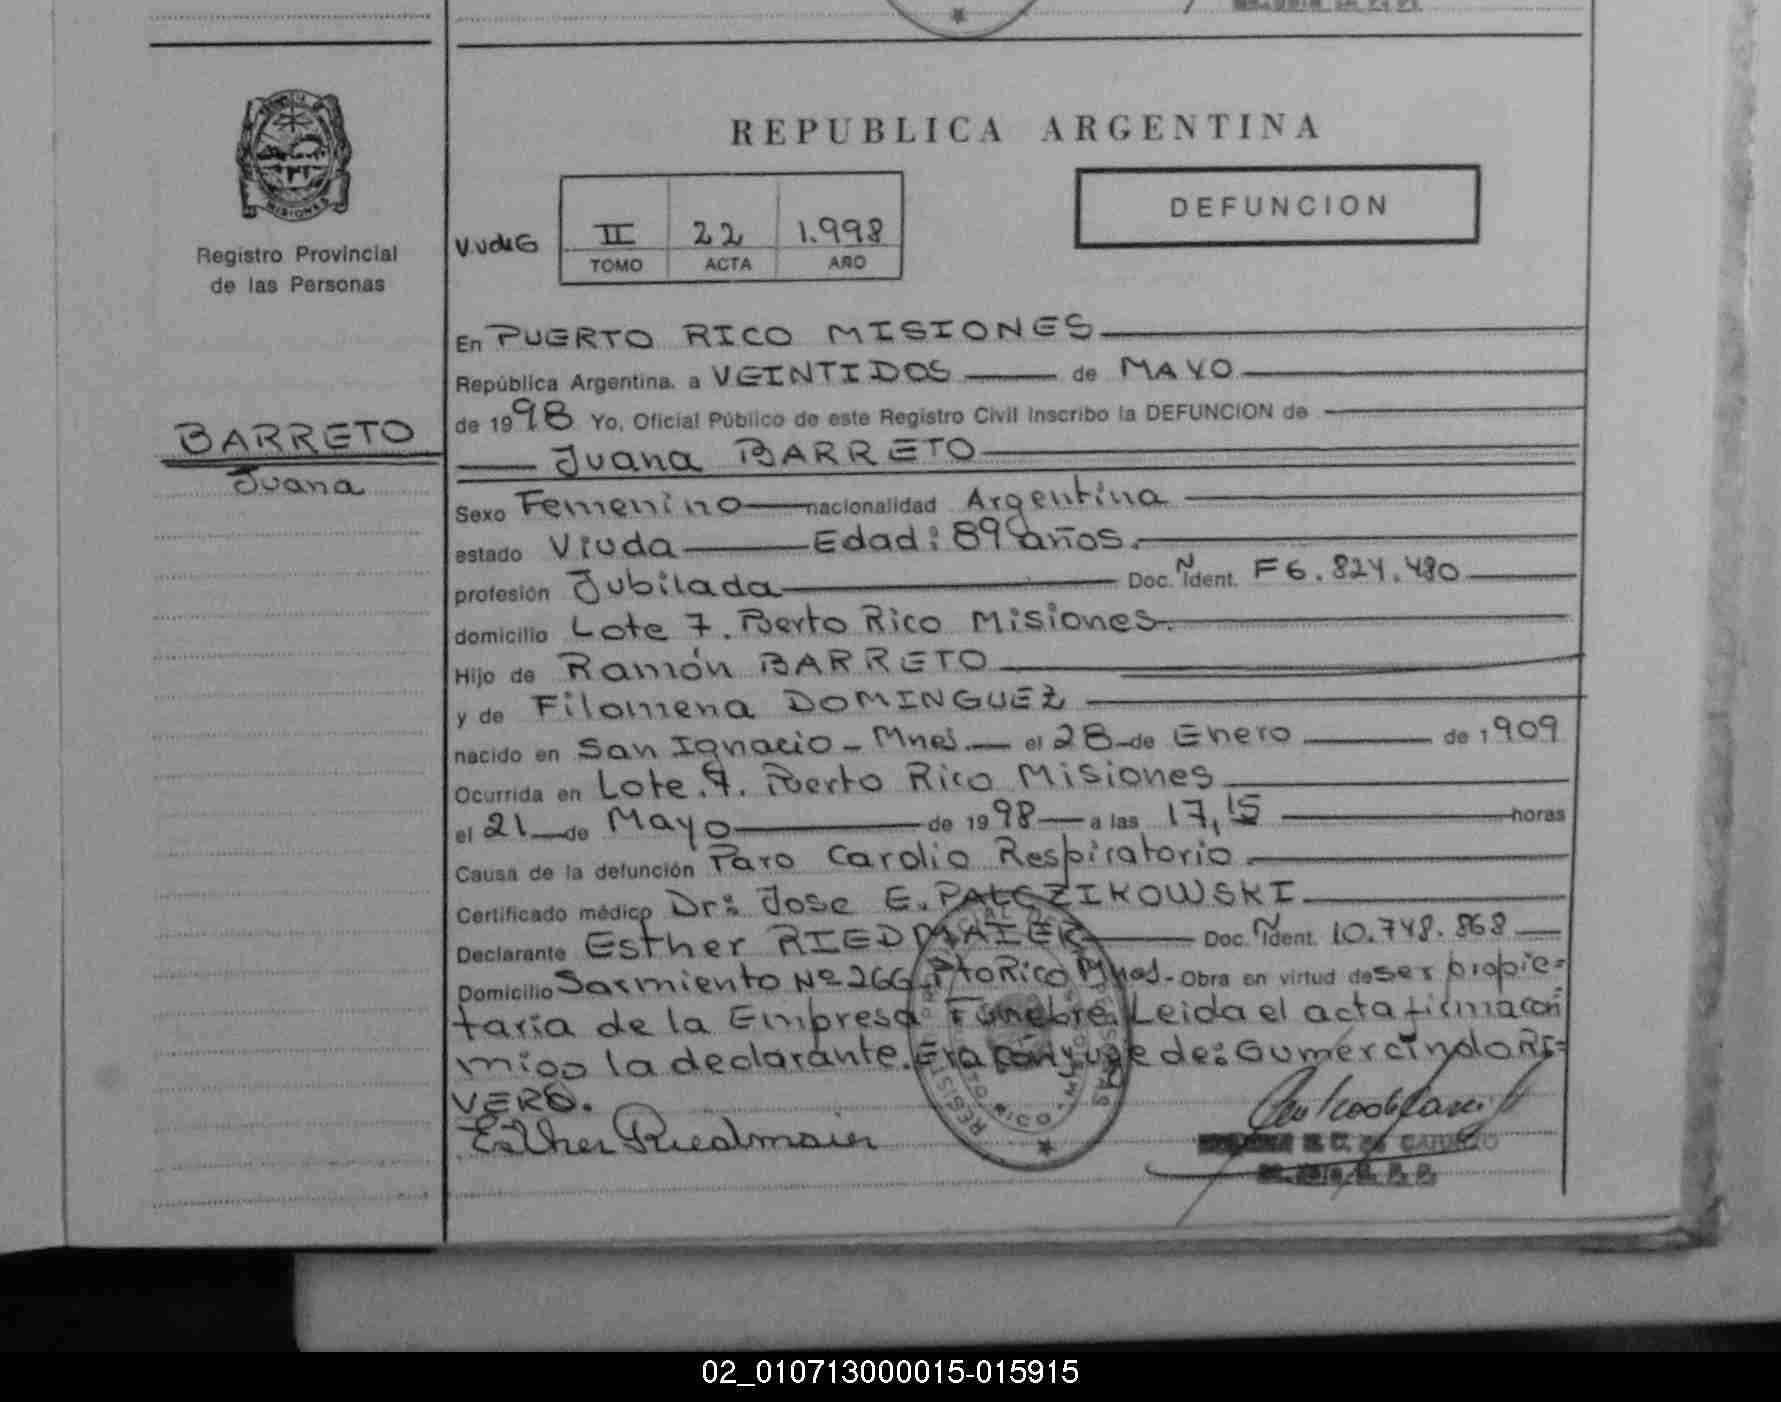 MISIONES
Registro Provincial
de las Personas
BARRETO
Juana
REPUBLICA ARGENTINA
V.ude G
II 22 1.998
TOMO ACTA AÑO
DEFUNCION
En PUERTO RICO MISIONES
República Argentina, a VEINTIDOS de MAYO
de 1998 Yo, Oficial Público de este Registro Civil inscribo la DEFUNCION de
Juana BARRETO
Sexo Femenino nacionalidad Argentina
estado Viuda Edad: 89 años.
profesión Jubilada Doc. N Ident. F 6.824.480
domicilio Lote 7. Puerto Rico Misiones.
Hijo de Ramón BARRETO
y de Filomena DOMINGUEZ
nacido en San Ignacio - Mnes. el 28 de Enero de 1909
Ocurrida en Lote. 7. Puerto Rico Misiones
el 21 de Mayo de 1998 a las 17,15 horas
Causa de la defunción Paro Cardio Respiratorio
Certificado médico Dr: Jose E. PALCZIKOWSKI
Declarante Esther RIEDMAIER Doc. N Ident. 10.748.868
Domicilio Sarmiento Nº 266 Pto Rico Mnes. Obra en virtud de ser propie=
taria de la Empresa Fúnebre. Leida el acta firma con
migo la declarante. Era conyuge de: Gumercindo RI=
VERO.
Esther Riedmaier
02_010713000015-015915